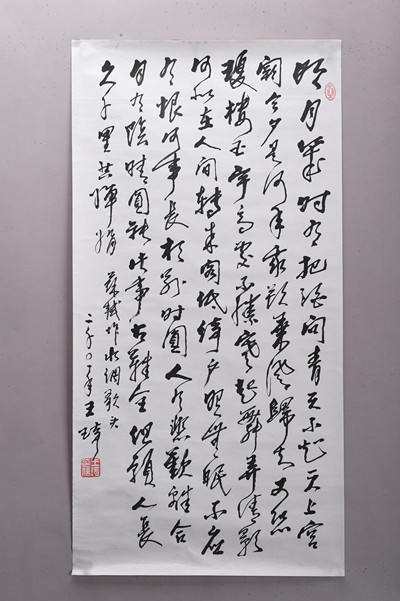 明月幾时有把酒问青天不知天上宫
阙今夕是何年我欲乘风歸去又恐
瓊楼玉宇高處不勝寒起舞弄清影
何似在人间轉朱阁低绮户照無眠不应
有恨何事長於别时圆人有悲歡離合
月有陰晴圆缺此事古難全但願人長
久千里共婵娟
蘇軾作水调歌头
二千〇年王